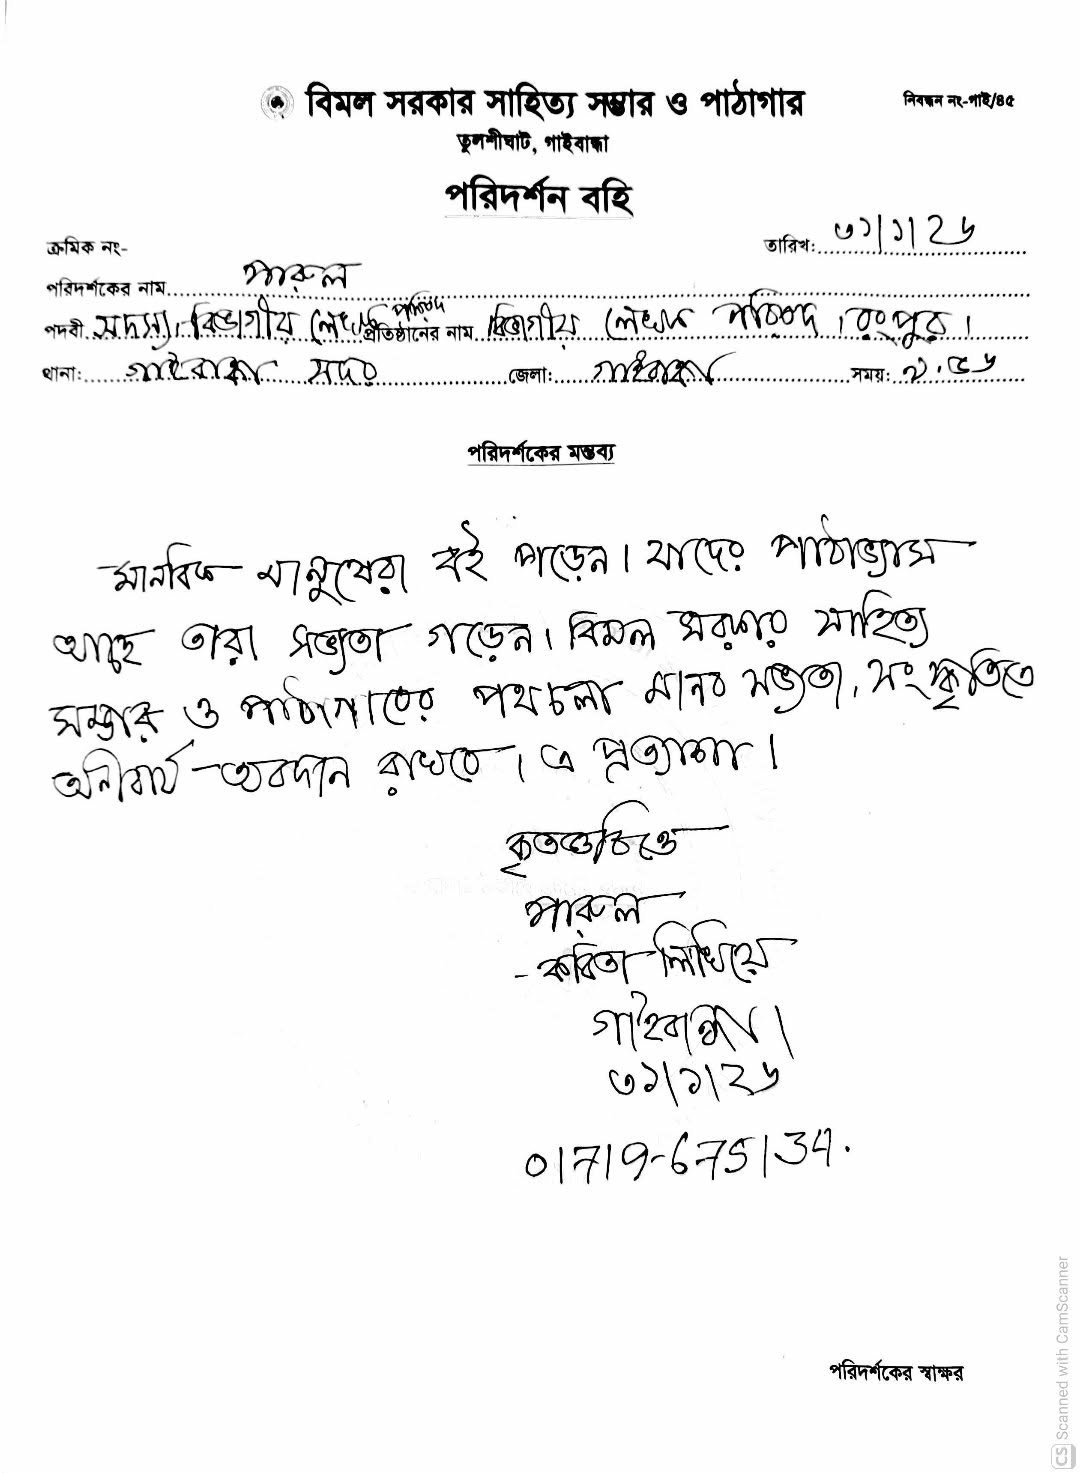 বিমল সরকার সাহিত্য সম্ভার ও পাঠাগার
নিবন্ধন নং-গাই/৪৫
তুলশীঘাট, গাইবান্ধা
পরিদর্শন বহি
ক্রমিক নং-
তারিখ: ৩১/১/২৬
পরিদর্শকের নাম পারুল
পদবী সদস্য, বিভাগীয় লেখক পরিষদ প্রতিষ্ঠানের নাম বিভাগীয় লেখক পরিষদ, রংপুর।
থানা: গাইবান্ধা সদর জেলা: গাইবান্ধা সময়: ২.৫৬
পরিদর্শকের মন্তব্য
মানবিক মানুষেরা বই পড়েন। যাদের পাঠাভ্যাস
আছে তারা সভ্যতা গড়েন। বিমল সরকার সাহিত্য
সম্ভার ও পাঠাগারের পথচলা মানব সভ্যতা, সংস্কৃতিতে
অনীবার্য অবদান রাখবে। এ প্রত্যাশা।
কৃতজ্ঞচিত্তে
পারুল
- কবিতা লিখিয়ে
গাইবান্ধা।
৩১/১/২৬
01719-675134.
পরিদর্শকের স্বাক্ষর
CS Scanned with CamScanner